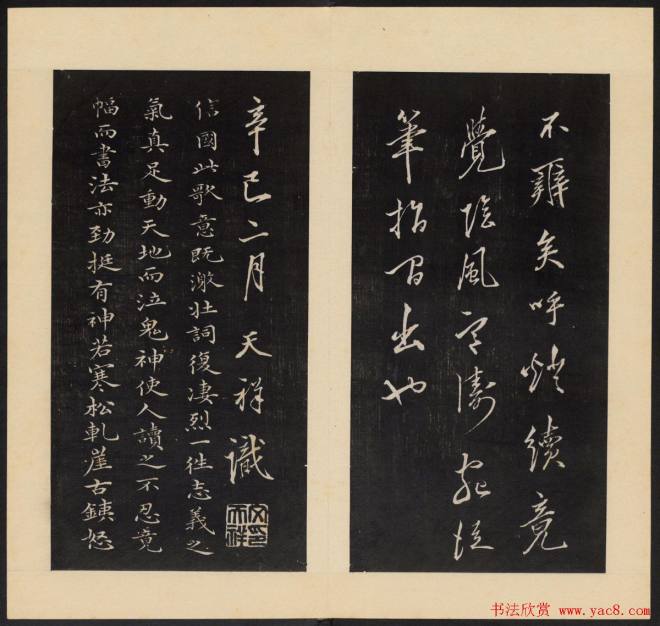 不辭矣呼燈續竟
覺陰風濤從
筆指間出也
辛巳二月天祥識
信國此歌意既激壯詞復凄烈一往志義之
氣真足動天地而泣鬼神使人讀之不忍竟
幅而書法亦勁挺有神若寒松軋崖古鐵怒
文印天祥
书法欣赏 www.yac8.com